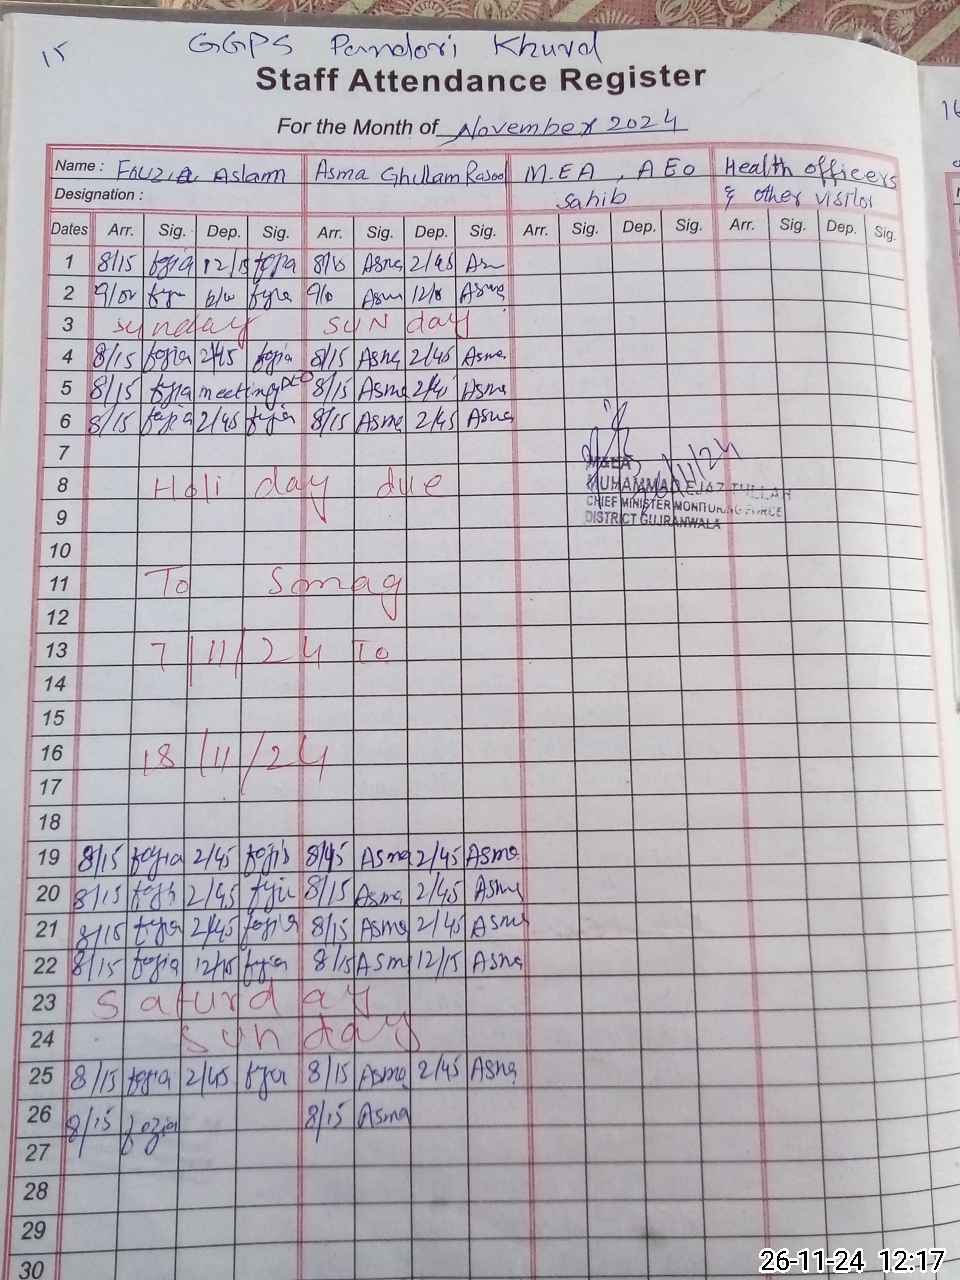 15 GGPS Pandori Khurd
Staff Attendance Register
For the Month of November 2024
Name : Fouzia Aslam Asma Ghullam Rasool M.EA , AEO Health officers
Designation : Sahib & other visitor
Dates Arr. Sig. Dep. Sig. Arr. Sig. Dep. Sig. Arr. Sig. Dep. Sig. Arr. Sig. Dep. Sig.
1 8/15 fozia 12/15 fozia Asma 2/45
2 Asma Asma
3 Sunday SUN day
4 8/15 fozia 2/45 fozia 8/15 Asma 2/45 Asma
5 8/15 fozia meeting 8/15 Asma 2/45 Asma
6 8/15 fozia 2/45 fozia 8/15 Asma 2/45 Asma
7
8 Holi day due
MUHAMMAD EJAZ ULLAH
9 CHIEF MINISTER MONITORING FORCE
DISTRICT GUJRANWALA
10
11 To Smag
12
13 7/11/24 To
14
15
16 18/11/24
17
18
19 8/15 fozia 2/45 fozia 8/45 Asma 2/45 Asma
20 8/15 fozia 2/45 fozia 8/15 Asma 2/45 Asma
21 8/15 fozia 2/45 fozia 8/15 Asma 2/45 Asma
22 8/15 fozia 12/15 fozia 8/15 Asma 12/15 Asma
23 Saturday
24 Sunday
25 8/15 fozia 2/45 fozia 8/15 Asma 2/45 Asma
26 8/15 fozia 8/15 Asma
27
28
29
30
26-11-24 12:17